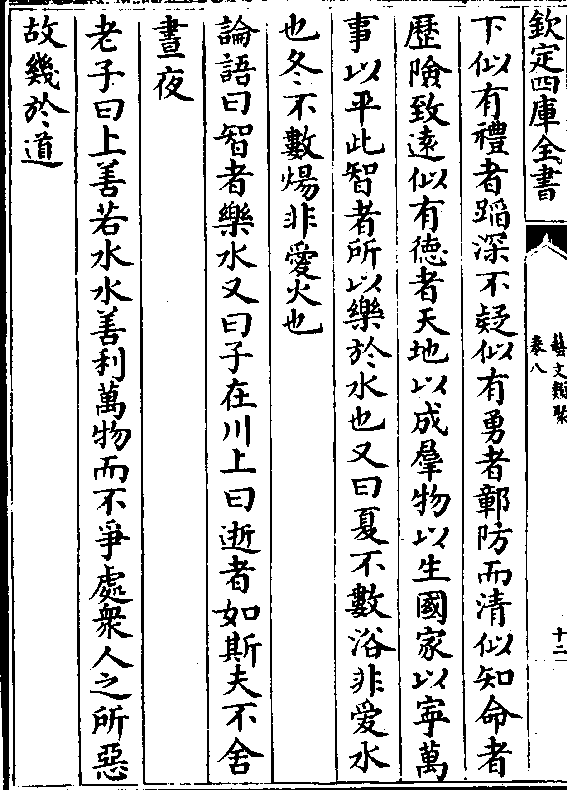 欽定四庫全書
藝文類聚
卷八
十二
下似有禮者蹈深不疑似有勇者鄣防而清似知命者
歷險致遠似有德者天地以成羣物以生國家以寧萬
事以平此智者所以樂於水也又曰夏不數浴非愛水
也冬不數煬非愛火也
論語曰智者樂水又曰子在川上曰逝者如斯夫不舍
晝夜
老子曰上善若水水善利萬物而不爭處衆人之所惡
故幾於道